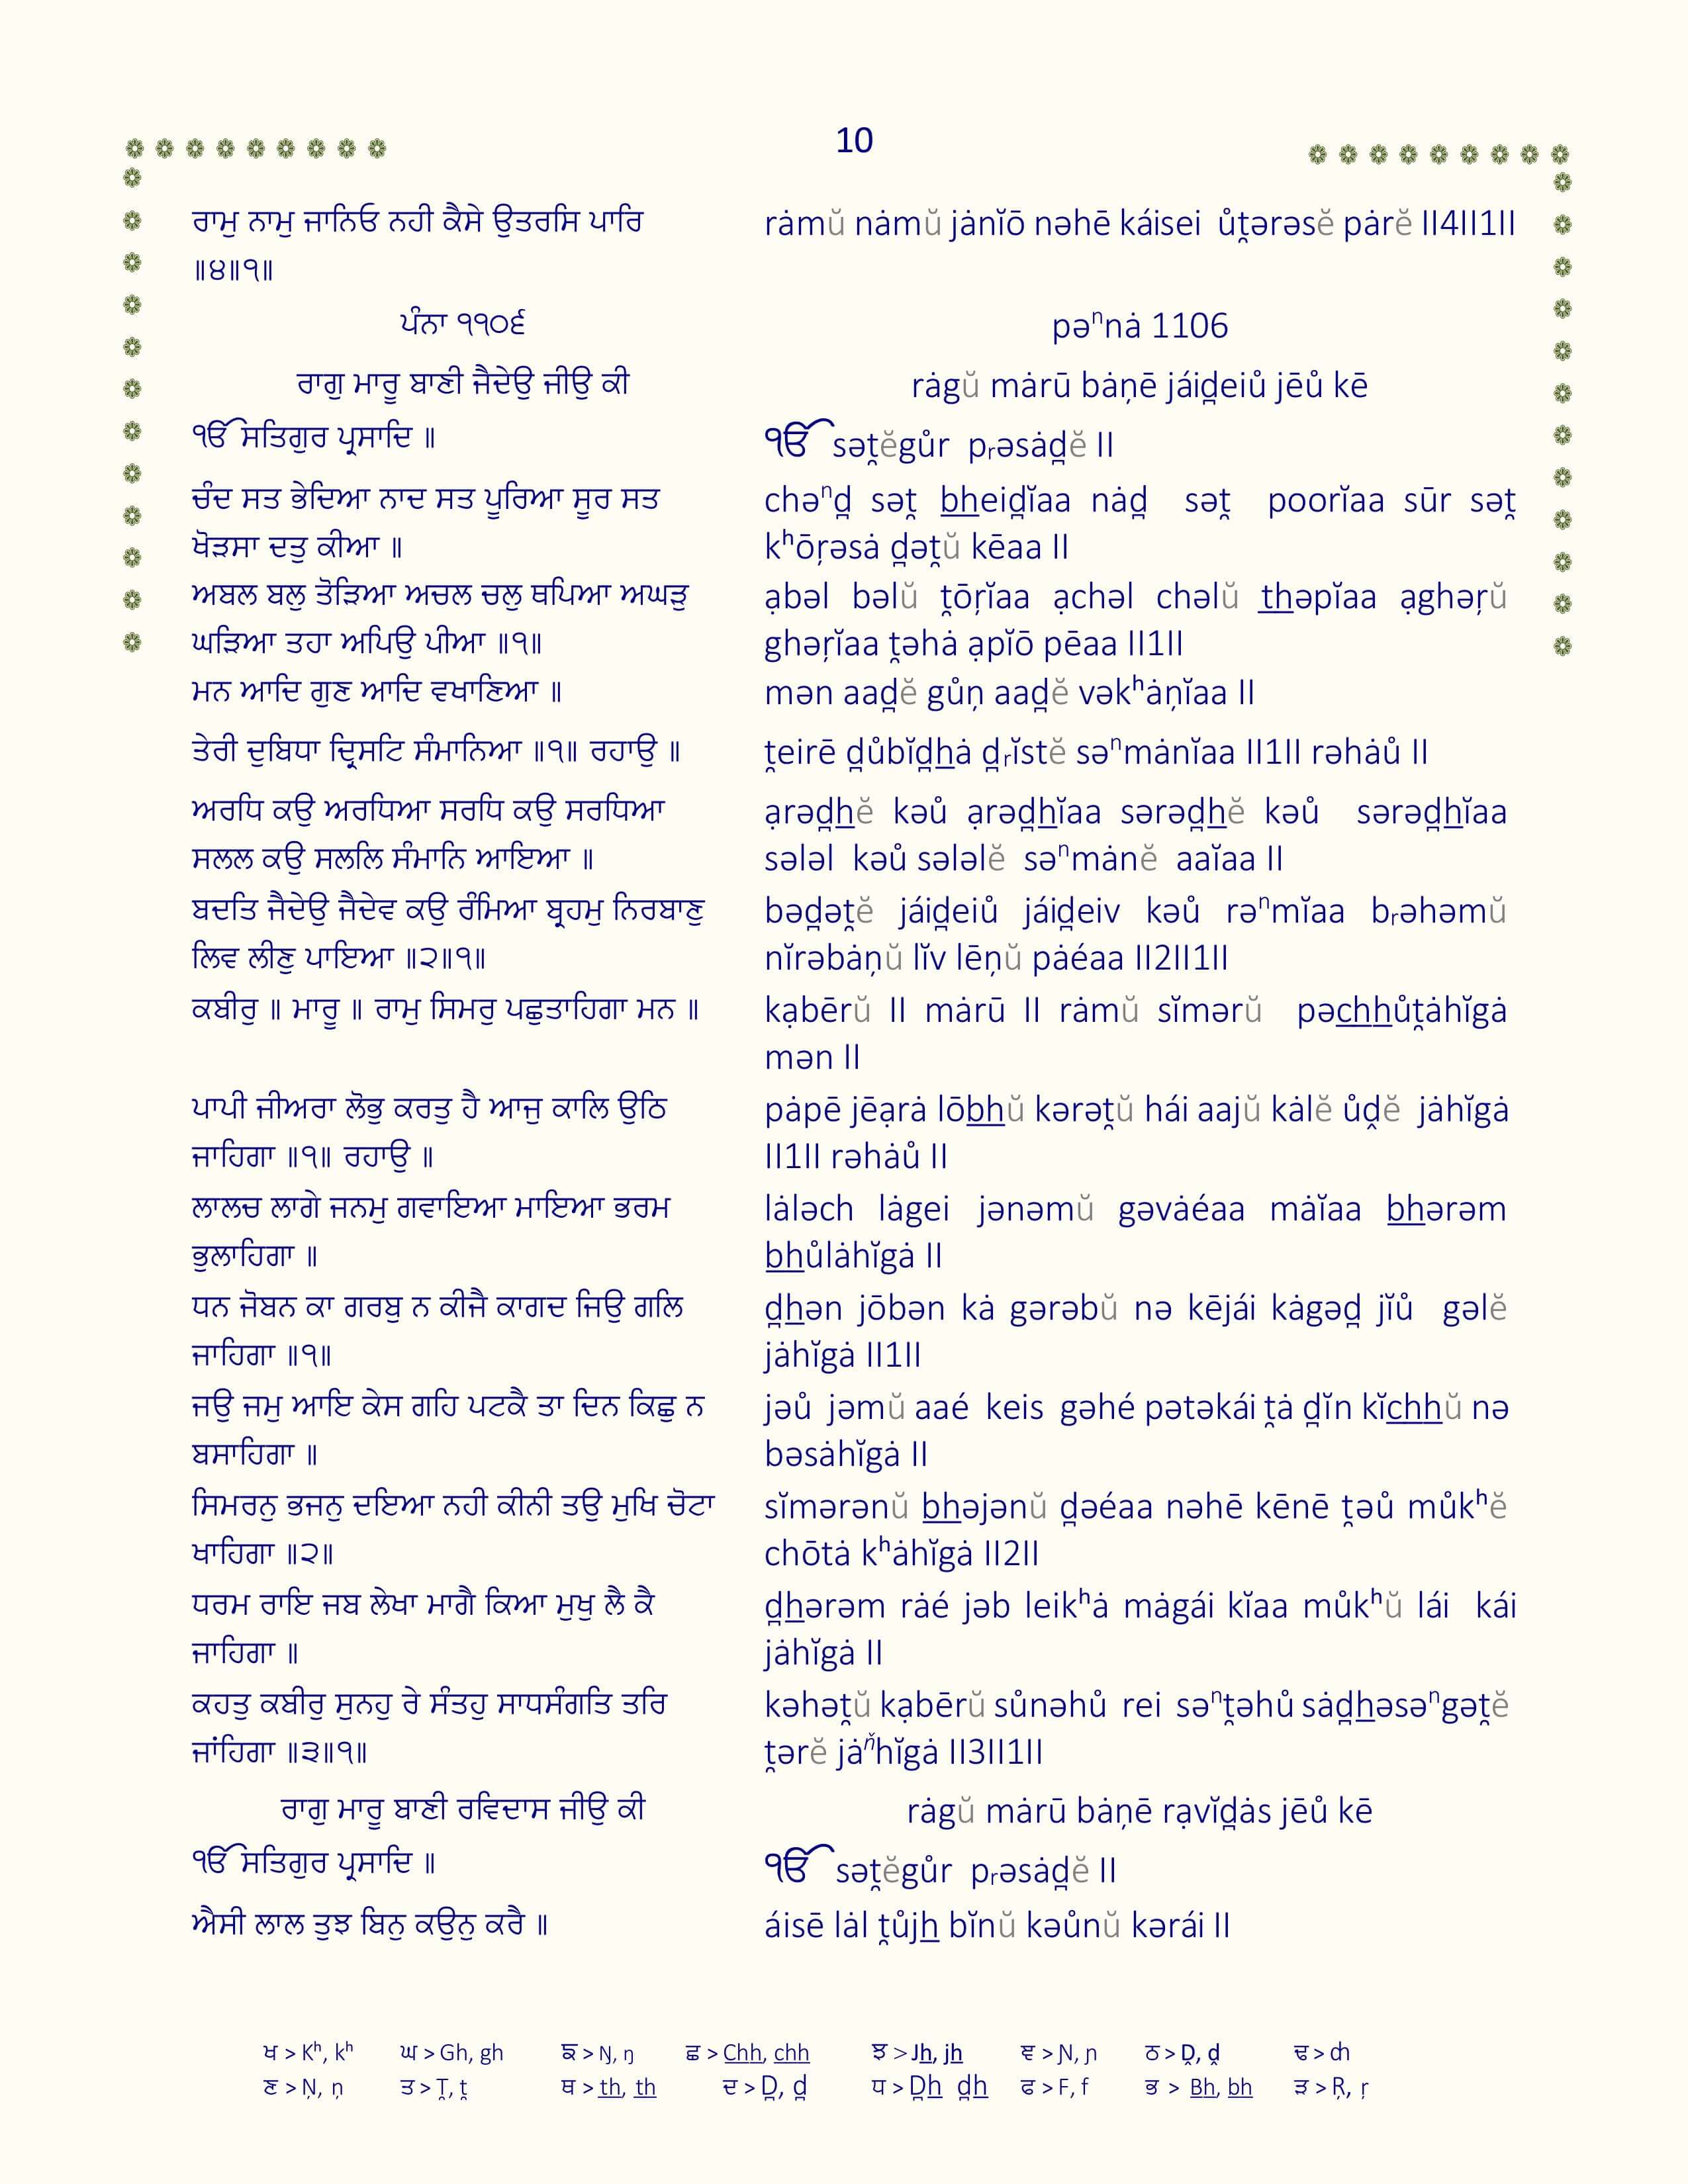 10
ਰਾਮੁ ਨਾਮੁ ਜਾਨਿਓ ਨਹੀ ਕੈਸੇ ਉਤਰਸਿ ਪਾਰਿ
॥੪॥੧॥
rȧmŭ nȧmŭ jȧnĭō nəhē káisei ůṱərəsĕ pȧrĕ II4II1II
ਪੰਨਾ ੧੧੦੬
pəⁿnȧ 1106
ਰਾਗੁ ਮਾਰੂ ਬਾਣੀ ਜੈਦੇਉ ਜੀਉ ਕੀ
rȧgŭ mȧrū bȧṇē jáid̪eiů jēů kē
ੴ ਸਤਿਗੁਰ ਪ੍ਰਸਾਦਿ ॥
ੴ səṱĕgůr pᵣəsȧd̪ĕ II
ਚੰਦ ਸਤ ਭੇਦਿਆ ਨਾਦ ਸਤ ਪੂਰਿਆ ਸੂਰ ਸਤ
ਖੋੜਸਾ ਦਤੁ ਕੀਆ ॥
chəⁿd̪ səṱ bheid̪ĭaa nȧd̪ səṱ poorĭaa sūr səṱ
kʰōṛəsȧ d̪əṱŭ kēaa II
ਅਬਲ ਬਲੁ ਤੋੜਿਆ ਅਚਲ ਚਲੁ ਥਪਿਆ ਅਘੜੁ
ਘੜਿਆ ਤਹਾ ਅਪਿਉ ਪੀਆ ॥੧॥
ạbəl bəlŭ ṱōṛĭaa ạchəl chəlŭ thəpĭaa ạghəṛŭ
ghəṛĭaa ṱəhȧ ạpĭō pēaa II1II
ਮਨ ਆਦਿ ਗੁਣ ਆਦਿ ਵਖਾਣਿਆ ॥
mən aad̪ĕ gůṇ aad̪ĕ vəkʰȧṇĭaa II
ਤੇਰੀ ਦੁਬਿਧਾ ਦ੍ਰਿਸਟਿ ਸੰਮਾਨਿਆ ॥੧॥ ਰਹਾਉ ॥
ṱeirē d̪ůbĭd̪hȧ d̪ᵣĭstĕ səⁿmȧnĭaa II1II rəhȧů II
ਅਰਧਿ ਕਉ ਅਰਧਿਆ ਸਰਧਿ ਕਉ ਸਰਧਿਆ
ਸਲਲ ਕਉ ਸਲਲਿ ਸੰਮਾਨਿ ਆਇਆ ॥
ạrəd̪hĕ kəů ạrəd̪hĭaa sərəd̪hĕ kəů sərəd̪hĭaa
sələl kəů sələlĕ səⁿmȧnĕ aaĭaa II
ਬਦਤਿ ਜੈਦੇਉ ਜੈਦੇਵ ਕਉ ਰੰਮਿਆ ਬ੍ਰਹਮੁ ਨਿਰਬਾਣੁ
ਲਿਵ ਲੀਣੁ ਪਾਇਆ ॥੨॥੧॥
bəd̪əṱĕ jáid̪eiů jáid̪eiv kəů rəⁿmĭaa bᵣəhəmŭ
nĭrəbȧṇŭ lĭv lēṇŭ pȧéaa II2II1II
ਕਬੀਰੁ ॥ ਮਾਰੂ ॥ ਰਾਮੁ ਸਿਮਰੁ ਪਛੁਤਾਹਿਗਾ ਮਨ ॥
kạbērŭ II mȧrū II rȧmŭ sĭmərŭ pəchhůṱȧhĭgȧ
mən II
ਪਾਪੀ ਜੀਅਰਾ ਲੋਭੁ ਕਰਤੁ ਹੈ ਆਜੁ ਕਾਲਿ ਉਠਿ
ਜਾਹਿਗਾ ॥੧॥ ਰਹਾਉ ॥
pȧpē jēạrȧ lōbhŭ kərəṱŭ hái aajŭ kȧlĕ ůḓĕ jȧhĭgȧ
II1II rəhȧů II
ਲਾਲਚ ਲਾਗੇ ਜਨਮੁ ਗਵਾਇਆ ਮਾਇਆ ਭਰਮ
ਭੁਲਾਹਿਗਾ ॥
lȧləch lȧgei jənəmŭ gəvȧéaa mȧĭaa bhərəm
bhůlȧhĭgȧ II
ਧਨ ਜੋਬਨ ਕਾ ਗਰਬੁ ਨ ਕੀਜੈ ਕਾਗਦ ਜਿਉ ਗਲਿ
ਜਾਹਿਗਾ ॥੧॥
d̪hən jōbən kȧ gərəbŭ nə kējái kȧgəd̪ jĭů gəlĕ
jȧhĭgȧ II1II
ਜਉ ਜਮੁ ਆਇ ਕੇਸ ਗਹਿ ਪਟਕੈ ਤਾ ਦਿਨ ਕਿਛੁ ਨ
ਬਸਾਹਿਗਾ ॥
jəů jəmŭ aaé keis gəhé pətəkái ṱȧ d̪ĭn kĭchhŭ nə
bəsȧhĭgȧ II
ਸਿਮਰਨੁ ਭਜਨੁ ਦਇਆ ਨਹੀ ਕੀਨੀ ਤਉ ਮੁਖਿ ਚੋਟਾ
ਖਾਹਿਗਾ ॥੨॥
sĭmərənŭ bhəjənŭ d̪əéaa nəhē kēnē ṱəů můkʰĕ
chōtȧ kʰȧhĭgȧ II2II
ਧਰਮ ਰਾਇ ਜਬ ਲੇਖਾ ਮਾਗੈ ਕਿਆ ਮੁਖੁ ਲੈ ਕੈ
ਜਾਹਿਗਾ ॥
d̪hərəm rȧé jəb leikʰȧ mȧgái kĭaa můkʰŭ lái kái
jȧhĭgȧ II
ਕਹਤੁ ਕਬੀਰੁ ਸੁਨਹੁ ਰੇ ਸੰਤਹੁ ਸਾਧਸੰਗਤਿ ਤਰਿ
ਜਾਂਹਿਗਾ ॥੩॥੧॥
kəhəṱŭ kạbērŭ sůnəhů rei səⁿṱəhů sȧd̪həsəⁿgəṱĕ
ṱərĕ jȧň̃hĭgȧ II3II1II
ਰਾਗੁ ਮਾਰੂ ਬਾਣੀ ਰਵਿਦਾਸ ਜੀਉ ਕੀ
rȧgŭ mȧrū bȧṇē rạvĭd̪ȧs jēů kē
ੴ ਸਤਿਗੁਰ ਪ੍ਰਸਾਦਿ ॥
ੴ səṱĕgůr pᵣəsȧd̪ĕ II
ਐਸੀ ਲਾਲ ਤੁਝ ਬਿਨੁ ਕਉਨੁ ਕਰੈ ॥
áisē lȧl ṱůjh bĭnŭ kəůnŭ kərái II
ਖ > Kʰ, kʰ ਘ > Gh, gh ਙ > Ŋ, ŋ ਛ > Chh, chh ਝ > Jh, jh ਞ > Ɲ, ɲ ਠ > Ḓ, ḓ ਢ > ȸ
ਣ > Ṇ, ṇ ਤ > Ṱ, ṱ ਥ > th, th ਦ > D̪, d̪ ਧ > D̪h d̪h ਫ > F, f ਭ > Bh, bh ੜ > Ṛ, ṛ